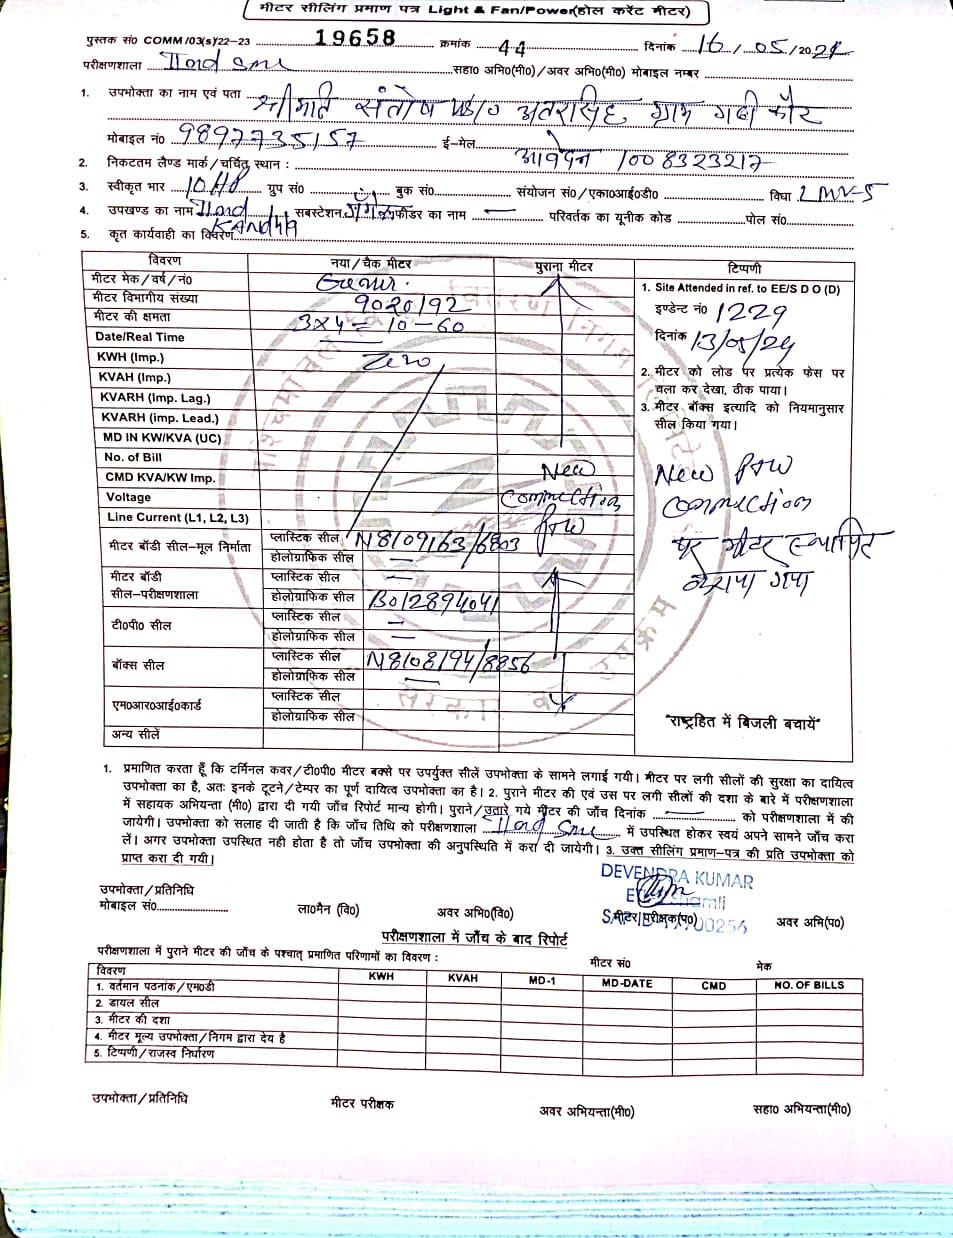 मीटर सीलिंग प्रमाण पत्र Light & Fan/Power(होल करेंट मीटर)
पुस्तक सं0 COMM/03(s)/22-23 19658 क्रमांक 44 दिनांक 16/05/2024
परीक्षणशाला IIord सहा0 अभि0(मी0)/अवर अभि0(मी0) मोबाइल नम्बर
1. उपभोक्ता का नाम एवं पता श्रीमति संतोष W/O अतरसिंह ग्राम गढी कौर
मोबाइल नं0 9897735157 ई-मेल
2. निकटतम लैण्ड मार्क/चर्चित स्थान : आवेदन 1008323217
3. स्वीकृत भार 10HP ग्रुप सं0 बुक सं0 संयोजन सं0/एका0आई0डी0 विधा LMV-5
4. उपखण्ड का नाम IIord सबस्टेशन फीडर का नाम — परिवर्तक का यूनीक कोड पोल सं0
5. कृत कार्यवाही का विवरण KANdhla
विवरण नया/चैक मीटर पुराना मीटर टिप्पणी
मीटर मेक/वर्ष/नं0 Genus.
मीटर विभागीय संख्या 9020192
मीटर की क्षमता 3x4= 10-60
Date/Real Time
KWH (Imp.) Zero
KVAH (Imp.)
KVARH (Imp. Lag.)
KVARH (imp. Lead.)
MD IN KW/KVA (UC)
No. of Bill
CMD KVA/KW Imp.
Voltage
Line Current (L1, L2, L3)
New
Connection
PTW
1. Site Attended in ref. to EE/S D O (D)
इण्डेन्ट नं0 1229
दिनांक 13/05/24
2. मीटर को लोड पर प्रत्येक फेस पर
चला कर देखा, ठीक पाया।
3. मीटर बॉक्स इत्यादि को नियमानुसार
सील किया गया।
New PTW
Connection
पर मीटर स्थापित
कराया गया
मीटर बॉडी सील-मूल निर्माता प्लास्टिक सील N8109163/6803
होलोग्राफिक सील —
मीटर बॉडी
सील-परीक्षणशाला
प्लास्टिक सील —
होलोग्राफिक सील B012894041
टी0पी0 सील
प्लास्टिक सील —
होलोग्राफिक सील —
बॉक्स सील
प्लास्टिक सील N8108194/8856
होलोग्राफिक सील —
एम0आर0आई0कार्ड
प्लास्टिक सील
होलोग्राफिक सील
अन्य सीलें
"राष्ट्रहित में बिजली बचायें"
1. प्रमाणित करता हूँ कि टर्मिनल कवर/टी0पी0 मीटर बक्से पर उपर्युक्त सीलें उपभोक्ता के सामने लगाई गयी। मीटर पर लगी सीलों की सुरक्षा का दायित्व
उपभोक्ता का है, अतः इनके टूटने/टेम्पर का पूर्ण दायित्व उपभोक्ता का है। 2. पुराने मीटर की एवं उस पर लगी सीलों की दशा के बारे में परीक्षणशाला
में सहायक अभियन्ता (मी0) द्वारा दी गयी जाँच रिपोर्ट मान्य होगी। पुराने/उतारे गये मीटर की जाँच दिनांक — को परीक्षणशाला में की
जायेगी। उपभोक्ता को सलाह दी जाती है कि जाँच तिथि को परीक्षणशाला IIord में उपस्थित होकर स्वयं अपने सामने जाँच करा
लें। अगर उपभोक्ता उपस्थित नही होता है तो जाँच उपभोक्ता की अनुपस्थिति में करा दी जायेगी। 3. उक्त सीलिंग प्रमाण-पत्र की प्रति उपभोक्ता को
प्राप्त करा दी गयी।
DEVENDRA KUMAR
Shamli
00256
उपभोक्ता/प्रतिनिधि
मोबाइल सं0 ला0मैन (वि0) अवर अभि0(वि0) मीटर परीक्षक(प0) अवर अभि(प0)
परीक्षणशाला में जाँच के बाद रिपोर्ट
परीक्षणशाला में पुराने मीटर की जाँच के पश्चात् प्रमाणित परिणामों का विवरण : मीटर सं0 मेक
विवरण KWH KVAH MD-1 MD-DATE CMD NO. OF BILLS
1. वर्तमान पठनांक/एम0डी
2. डायल सील
3. मीटर की दशा
4. मीटर मूल्य उपभोक्ता/निगम द्वारा देय है
5. टिप्पणी/राजस्व निर्धारण
उपभोक्ता/प्रतिनिधि मीटर परीक्षक अवर अभियन्ता(मी0) सहा0 अभियन्ता(मी0)